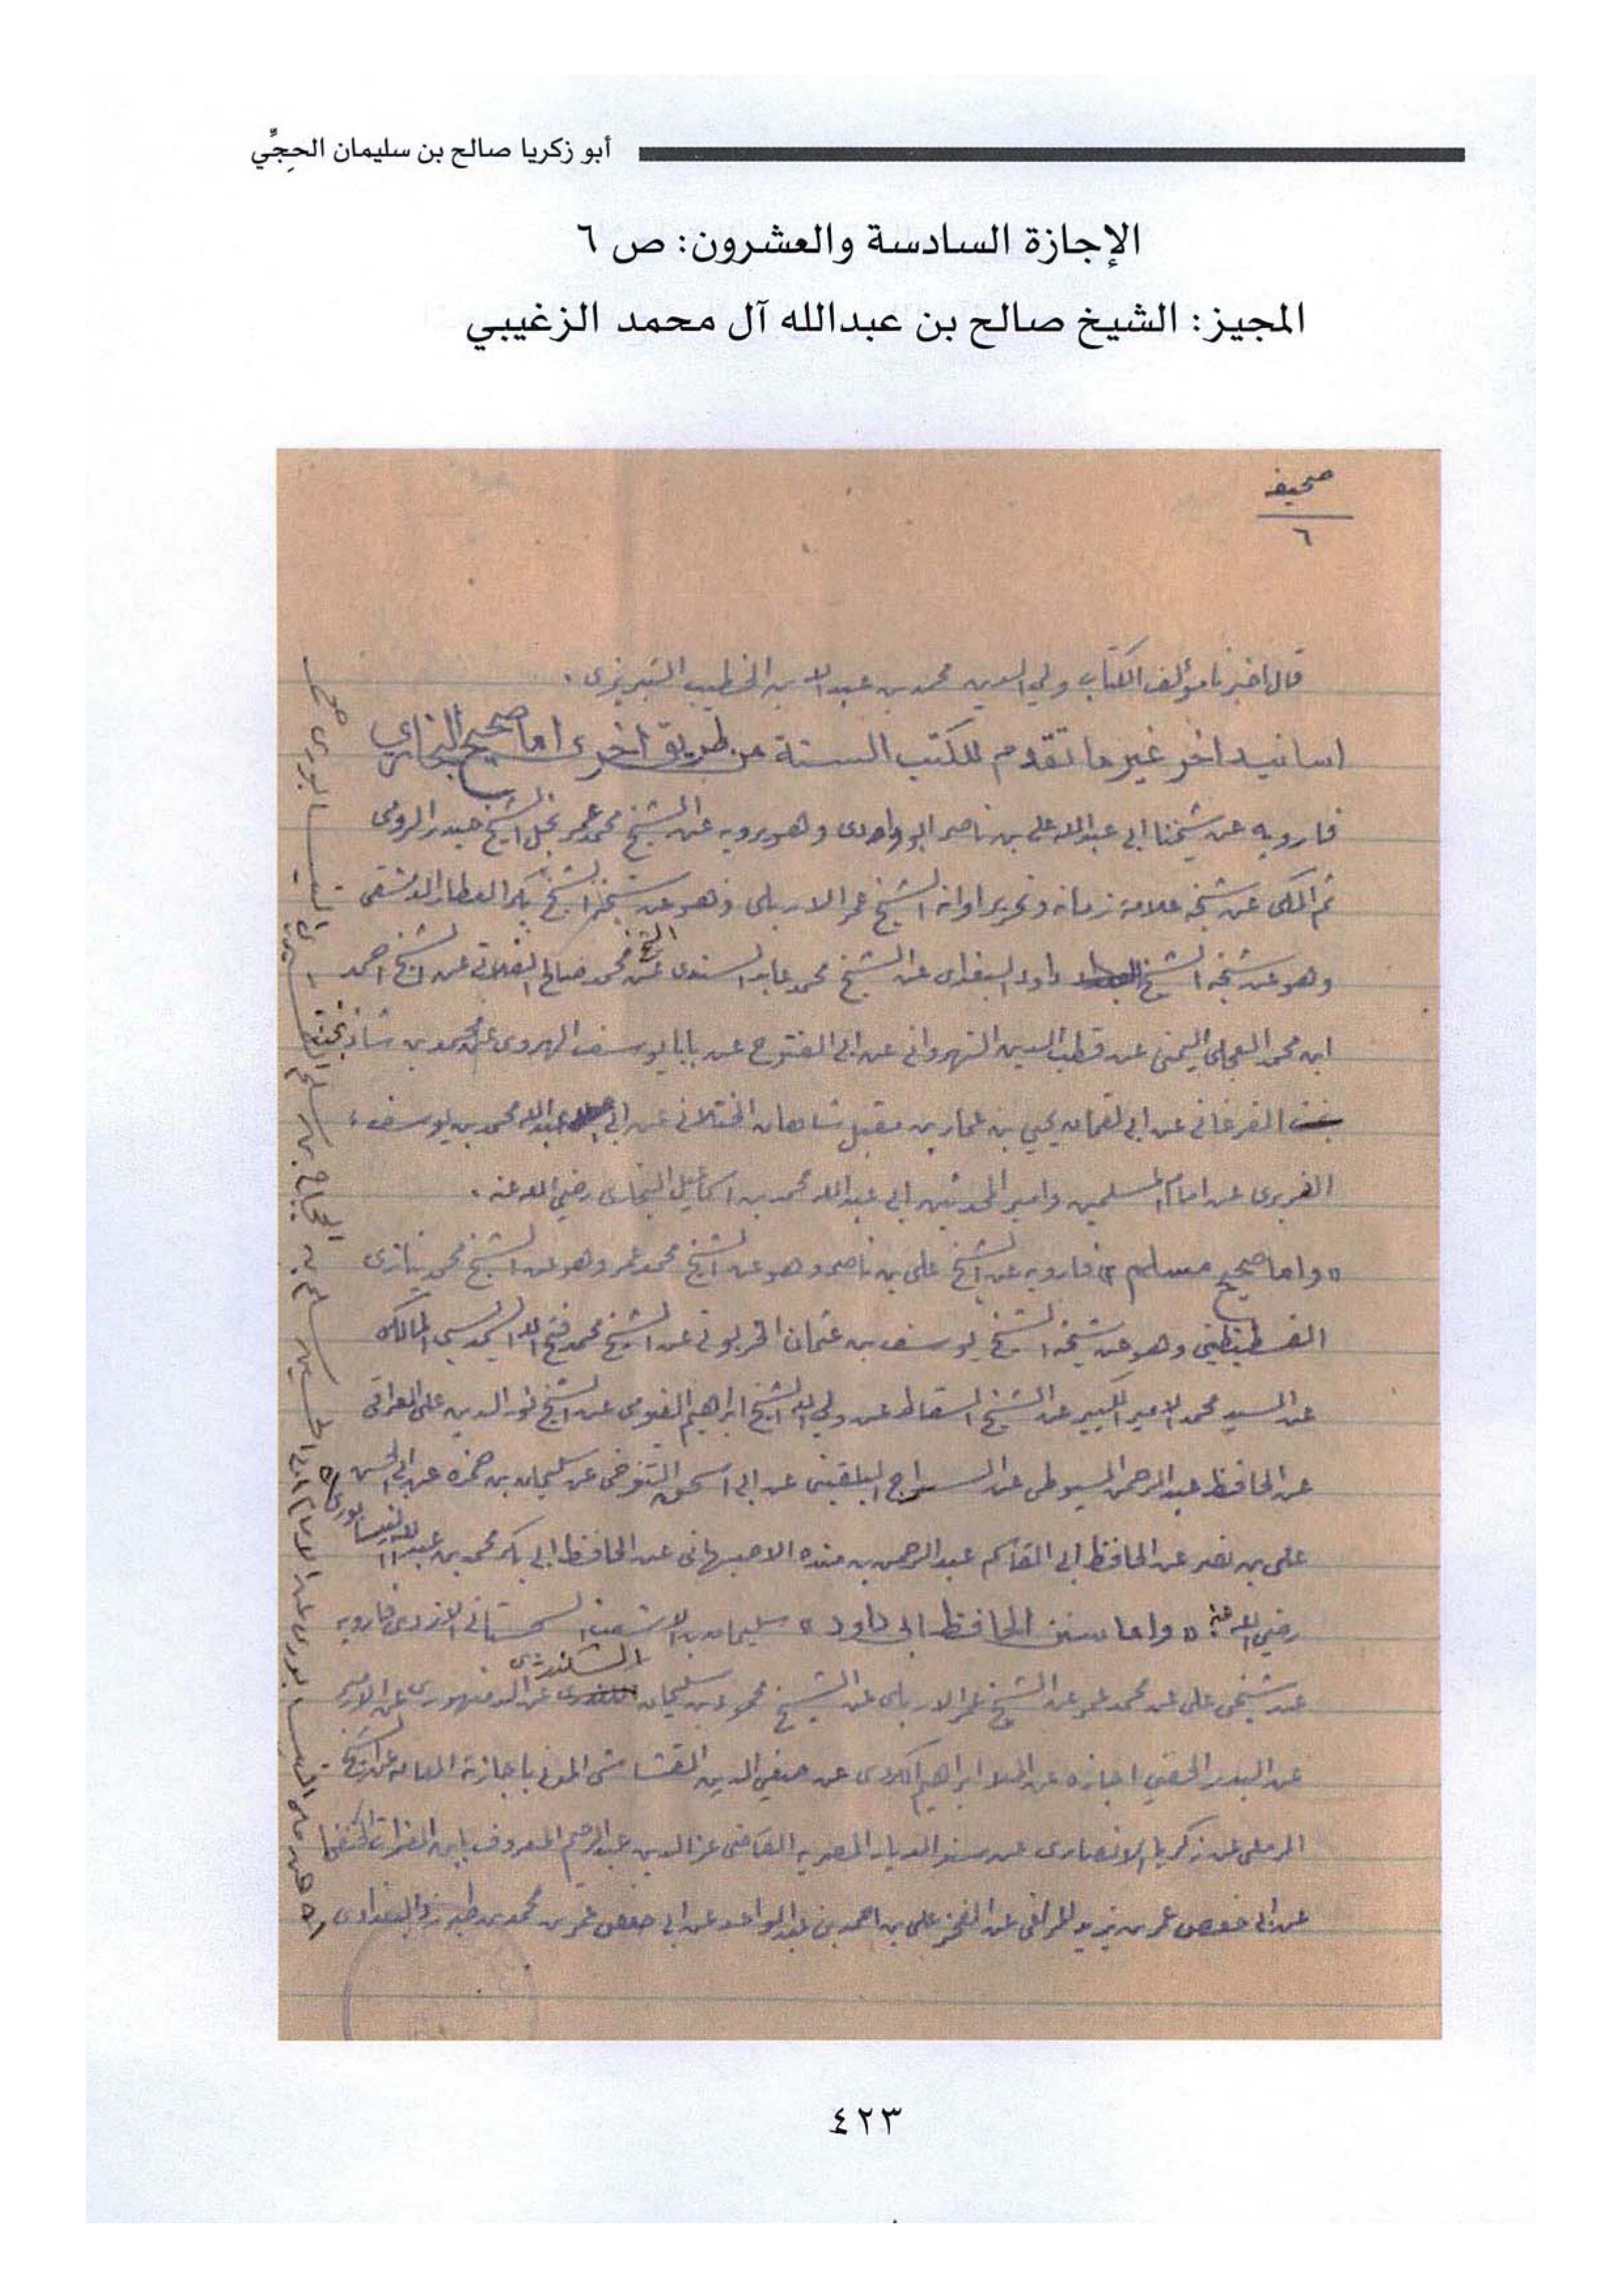 أبو زكريا صالح بن سليمان الحِجِّي
الإجازة السادسة والعشرون: ص ٦
المجيز: الشيخ صالح بن عبدالله آل محمد الزغيبي
صحيفه
٦
قال اخبرنا مؤلف الكتاب ولي الدين محمد بن عبد الله بن الخطيب التبريزي .
اسانيد اخر غير ما تقدم للكتب الستة من طريق اخرى اما صحيح البخاري
فارويه عن شيخنا ابي عبدالله علي بن ناصر ابو وادى وهو يرويه عن الشيخ محمد عمر نجل الشيخ حيدر الرومى
ثم المكى عن شيخه علامة زمانه ونحرير اوانه الشيخ عمر الاربلى وهو عن شيخه الشيخ بكر العطار الدمشقى
وهو عن شيخه الشيخ داود البغدادى عن الشيخ محمد عابد السندى عن الشيخ محمد صالح الفلانى عن الشيخ احمد
ابن محمد العجلى اليمنى عن قطب الدين النهروانى عن ابي الفتوح عن بابا يوسف الهروى عن محمد بن شاذ بخت
الفرغانى عن ابي لقمان يحيى بن عمار بن مقبل شاهان الختلانى عن ابي عبدالله محمد بن يوسف
الفربرى عن امام المسلمين وامير المحدثين ابي عبدالله محمد بن اسماعيل البخارى رضي الله عنه .
واما صحيح مسلم فارويه عن الشيخ علي بن ناصر وهو عن الشيخ محمد عمر وهو عن الشيخ محمد نيازى
القسطنطينى وهو عن شيخه الشيخ يوسف بن عثمان الخربوتى عن الشيخ محمد فتح الله المالكى
عن السيد محمد الامير الكبير عن الشيخ السقاط عن ولي الله الشيخ ابراهيم الفيومى عن الشيخ نور الدين على القرافى
عن الحافظ عبد الرحمن السيوطى عن السراج البلقينى عن ابي اسحق التنوخى عن سليمان بن حمزه عن ابي الحسن
على بن نصر عن الحافظ ابي القاسم عبد الرحمن بن منده الاصبهانى عن الحافظ ابي بكر محمد بن عبدالله النيسابورى
رضي الله عنه واما سنن الحافظ ابي داود سليمان بن الاشعث السجستانى الازدى فارويه
عن شيخى على عن محمد عمر عن الشيخ عمر الاربلى عن الشيخ محمود بن سليمان عن الدمنهورى عن
عن البدر الحفنى اجازه عن الملا ابراهيم الكردى عن صفي الدين القشاشى المدنى باجازته العامه عن الشيخ
الرملى عن زكريا الانصارى عن مسند الديار المصريه القاضى عز الدين عبد الرحيم المعروف بابن الفرات
عن ابى حفص عمر بن يزيد المراغى عن الفخر على بن احمد بن عبد الواحد عن ابى حفص عمر بن محمد بن طبرزد البغدادى
٤٢٣